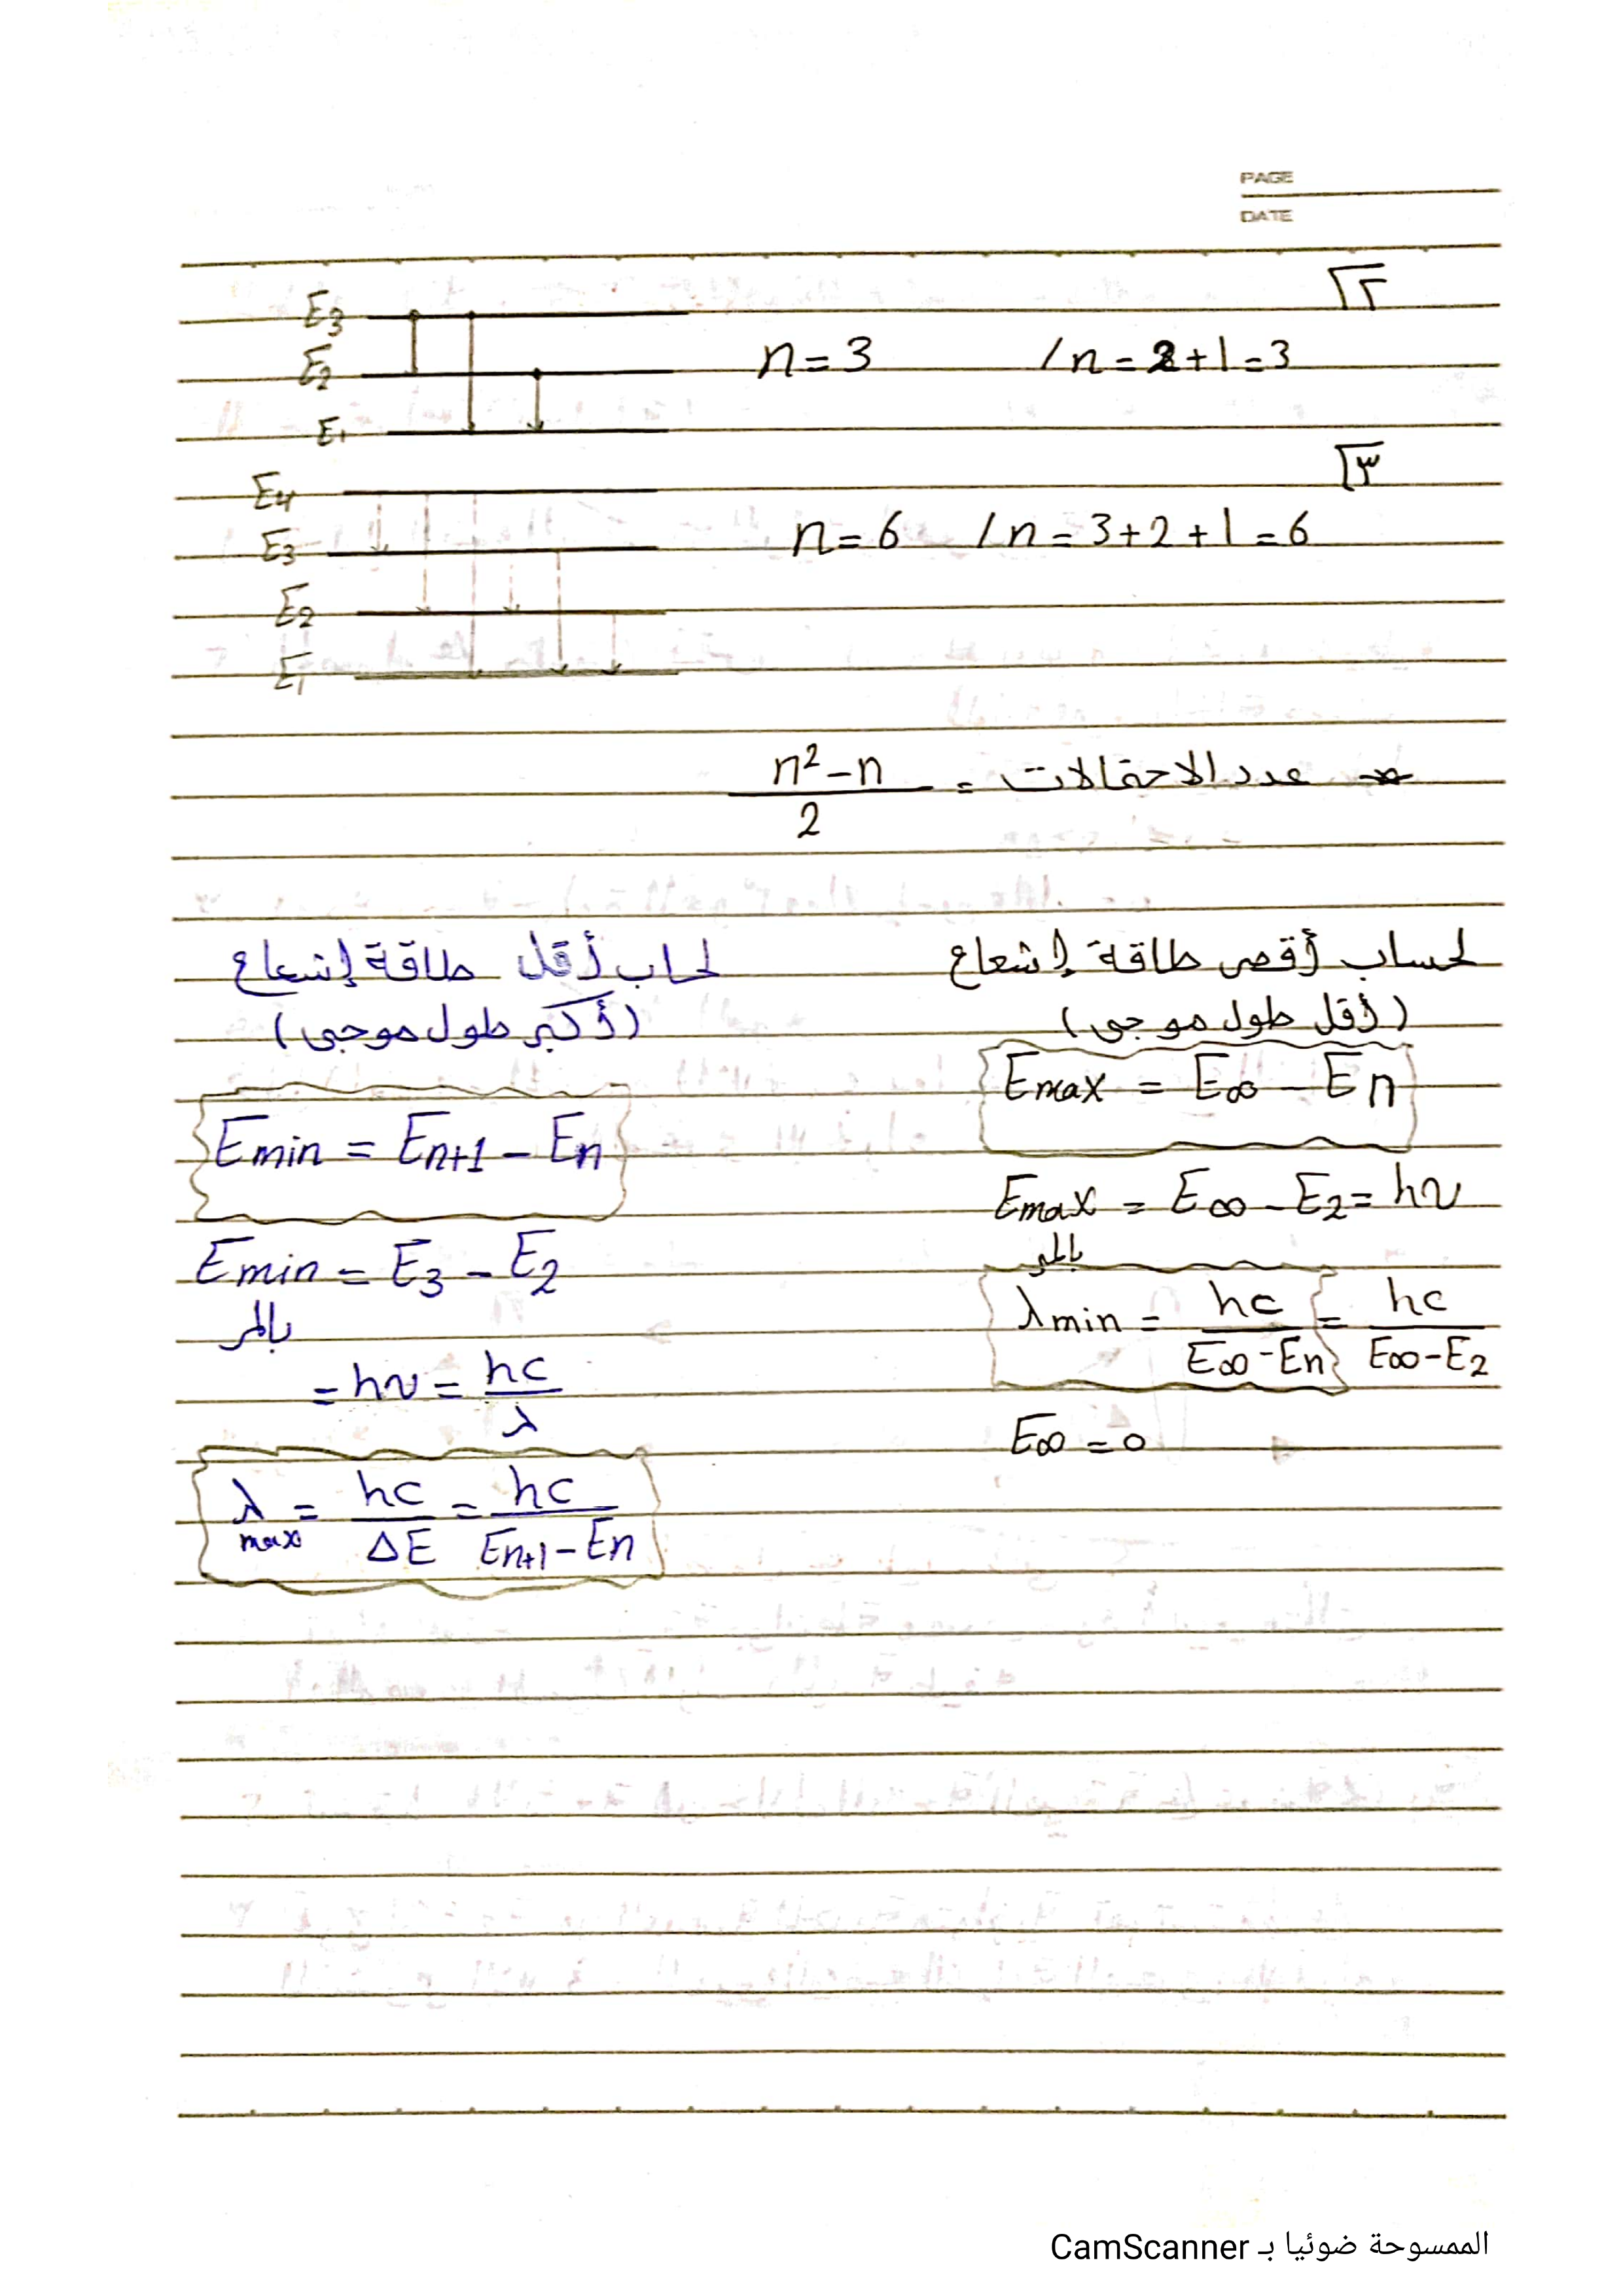 PAGE
DATE
٢
E3
E2
E1
n = 3 / n = 2 + 1 = 3
٣
E4
E3
E2
E1
n = 6 / n = 3 + 2 + 1 = 6
* عدد الاحتمالات = n² - n / 2
لحساب أقصى طاقة إشعاع
(أقل طول موجى)
Emax = E∞ - En
Emax = E∞ - E2 = hν
λmin = hc / E∞ - En = hc / E∞ - E2
E∞ = 0
لحساب أقل طاقة إشعاع
(أكبر طول موجى)
Emin = En+1 - En
Emin = E3 - E2
= hν = hc / λ
λmax = hc / ΔE = hc / En+1 - En
الممسوحة ضوئيا بـ CamScanner